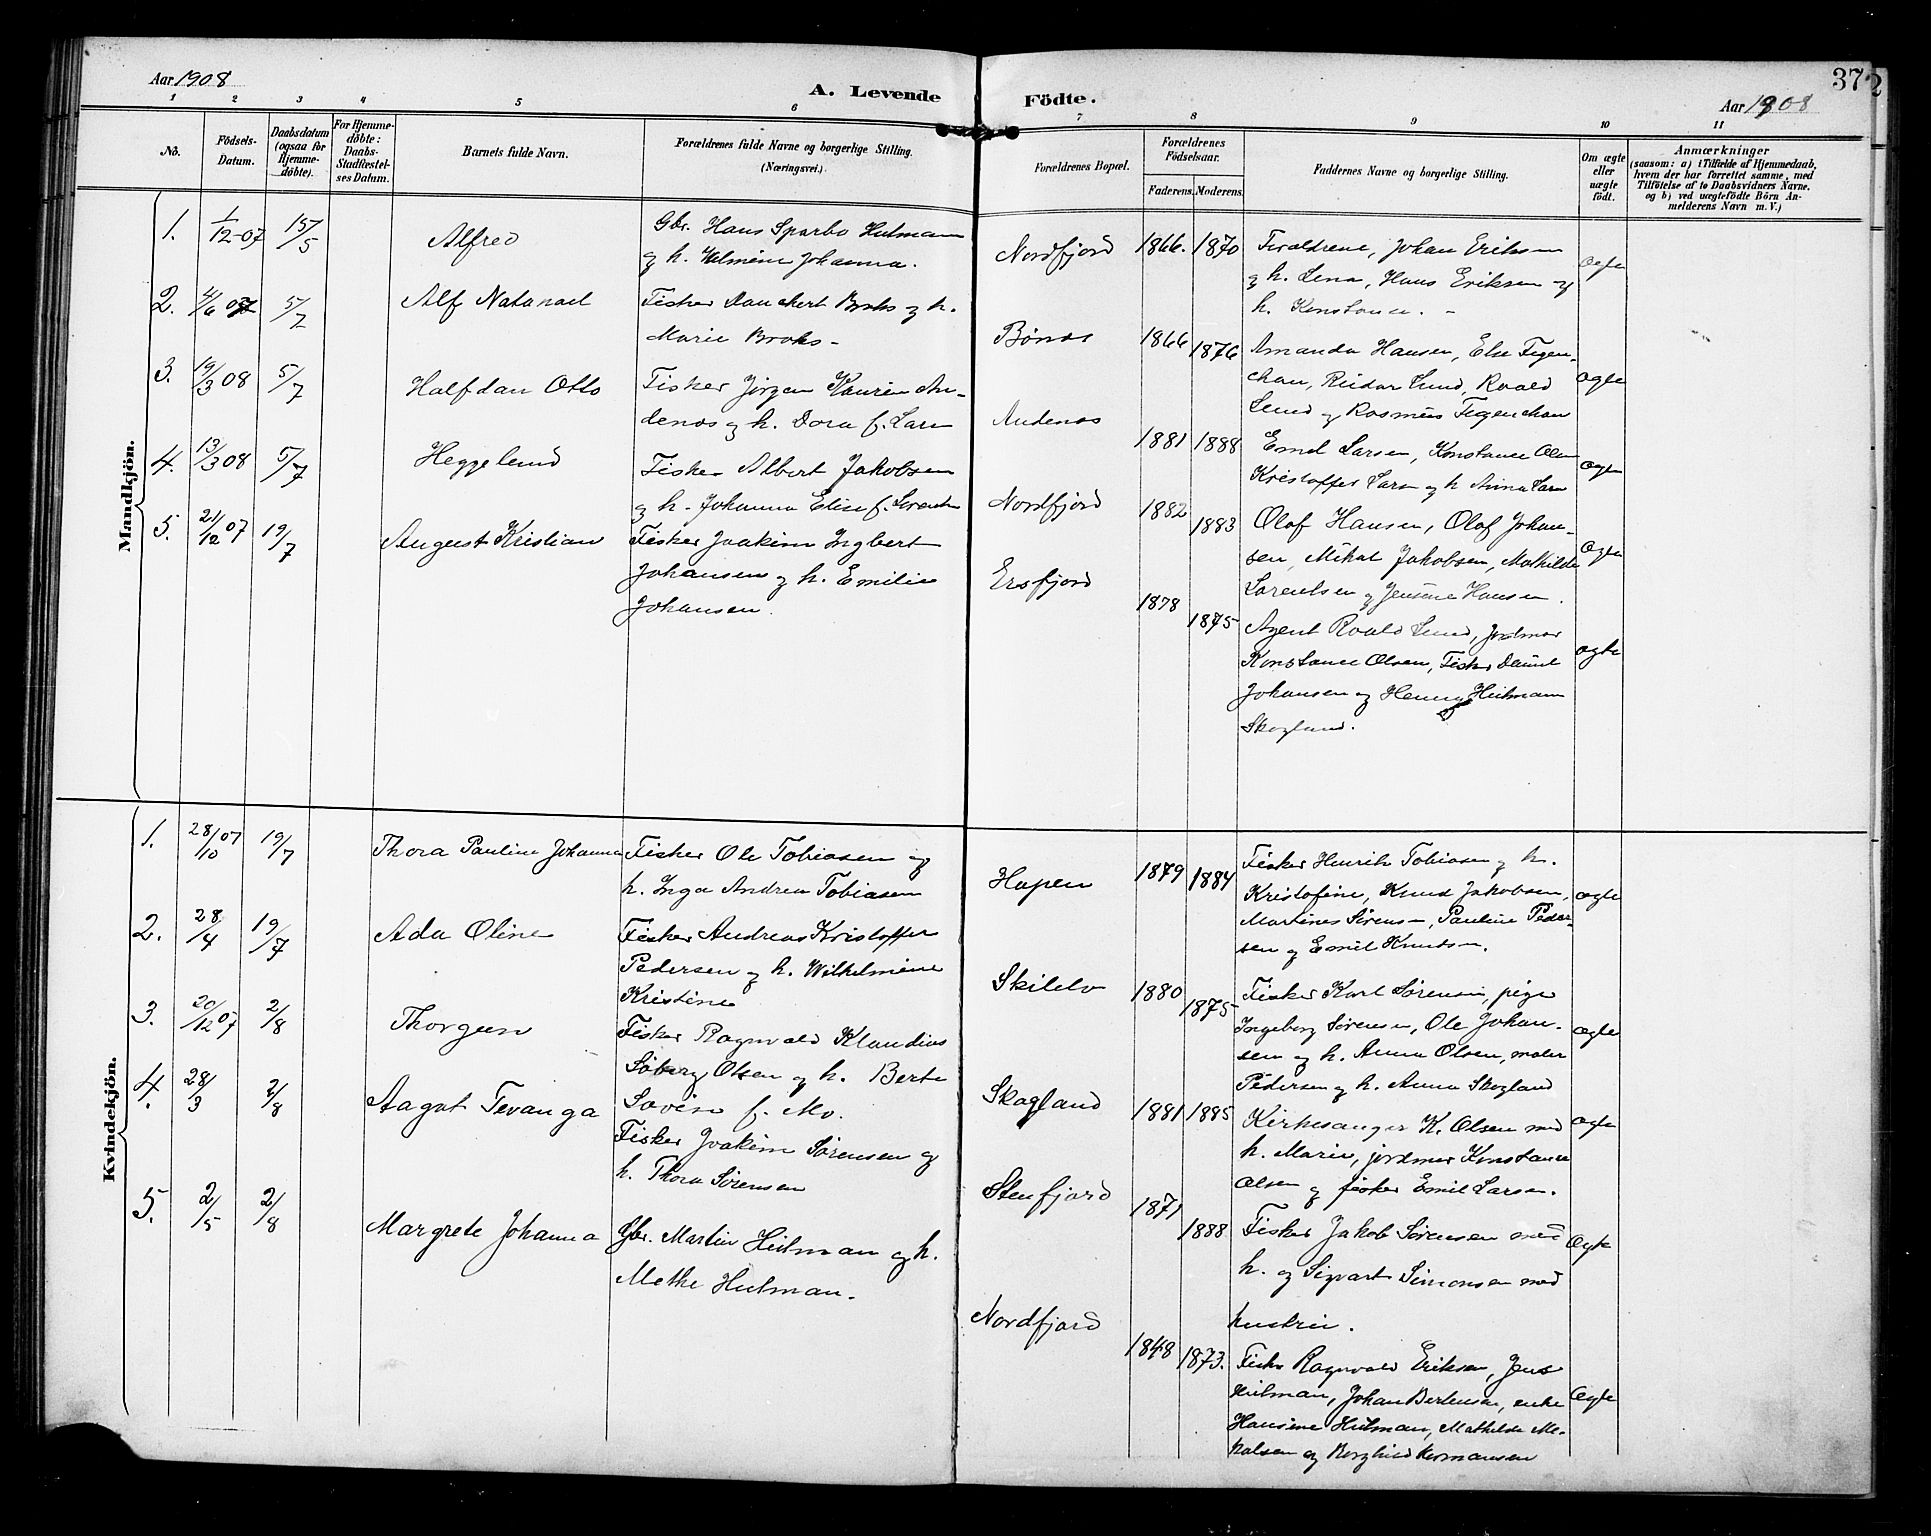 Aar 1908
A. Levende Födte.
Aar 1908
37
2
1 2 3 4 5 6 7 8 9 10 11
No.
Födsels-
Datum.
Daabsdatum
(ogsaa for
Hjemme-
döbte).
For Hjemme-
döbte:
Daabs-
Stadfæstel-
ses Datum.
Barnets fulde Navn.
Forældrenes fulde Navne og borgerlige Stilling.
(Næringsvei.)
Forældrenes Bopæl.
Forældrenes
Födselsaar.
Faderens. Moderens.
Faddernes Navne og borgerlige Stilling.
Om ægte
eller
uægte
født.
Anmærkninger
(saasom: a) i Tilfælde af Hjemmedaab,
hvem der har forrettet samme, med
Tilføielse af to Daabsvidners Navne.
og b) ved uægtefödte Börn An-
melderens Navn m. V.)
Mandkjön.
1. 1/12-07 15/5 Alfred
Gbr. Hans Sparbo Heitmann
og h. Halmine Johanna.
Nordfjord 1866. 1870
Foreldrene, Johan Eriksen
og h. Lena, Hans Eriksen og
h. Konstance. -
ægte
2. 4/6 07 5/7 Alf Natanael
Fisker Danckert Broks og h.
Marie Broks -
Bønes 1866 1876
Amanda Hansen, Else Tegen-
chan, Reidar Lund, Roald
Lund og Rasmus Tegenchan
ægte
3. 19/3 08 5/7 Halfdan Otto
Fisker Jörgen Kaurin An-
denes og h. Dora f. Larn
Andenes 1881 1888
Emil Larsen, Konstance Olsen
Kristoffer Larsn og h Anna Larn
ægte
4. 13/3 08 5/7 Heggelund
Fisker Albert Jakobsen
og h. Johanna Elise f. Lorentsn
Nordfjord 1882 1883
Olaf Hansen, Olaf Johan-
sen, Mikal Jakobsen, Mathilde
Lorentsen og Jensine Hansen.
ægte
5. 21/12 07 19/7 August Kristian
Fisker Joakim Ingbert
Johansen og h. Emilie
Johansen.
Ersfjord 1878 1875
Agent Roald Lund, Jordmor
Konstance Olsen, Fisker Daniel
Johansen og Henny Heitmann
Skogland.
ægte
Kvindekjön.
1. 28/10 07 19/7 Thora Pauline Johanna
Fisker Ole Tobiasen og
h. Inga Andrea Tobiasen
Hopen 1879 1884
Fisker Henrik Tobiasen og h.
Kristofine, Knud Jakobsen,
Martines Sörensn, Pauline Peder-
sen og Emil Knudsn.
ægte
2. 28/4 19/7 Ada Oline
Fisker Andreas Kristoffer
Pedersen og h. Wilhelmine
Kristine
Skilelv 1880 1875
Fisker Karl Sörensen, pige
Ingeborg Sörensen, Ole Johan-
sen og h. Anna Olsen, maler
Pedersen og h. Anna Skogland
ægte
3. 20/12 07 2/8 Thorgun
Fisker Ragnvald Klaudius
Söberg Olsen og h. Berte
Lovise f. Mo.
Skogland 1881 1885
Kirkesanger K. Olsen med
h. Marie, jordmor Konstance
Olsen og fisker Emil Larsen.
ægte
4. 28/3 2/8 Aagot Tevanga
Fisker Joakim Sörensen og
h. Thora Sörensen
Stenfjord 1871 1888
Fisker Jakob Sörensen med
h. og Sigvart Simonsen med
hustru.
Ægte
5. 2/5 2/8 Margrete Johanna
Gbr. Martin Heitman og h.
Methe Heitman.
Nordfjord 1848 1873.
Fisker Ragnvald Eriksen, Jens
Heitman, Johan Berntsen, enke
Hansine Heitman, Mathilde Mi-
kalsen og Borghild Hermansen
Ægte